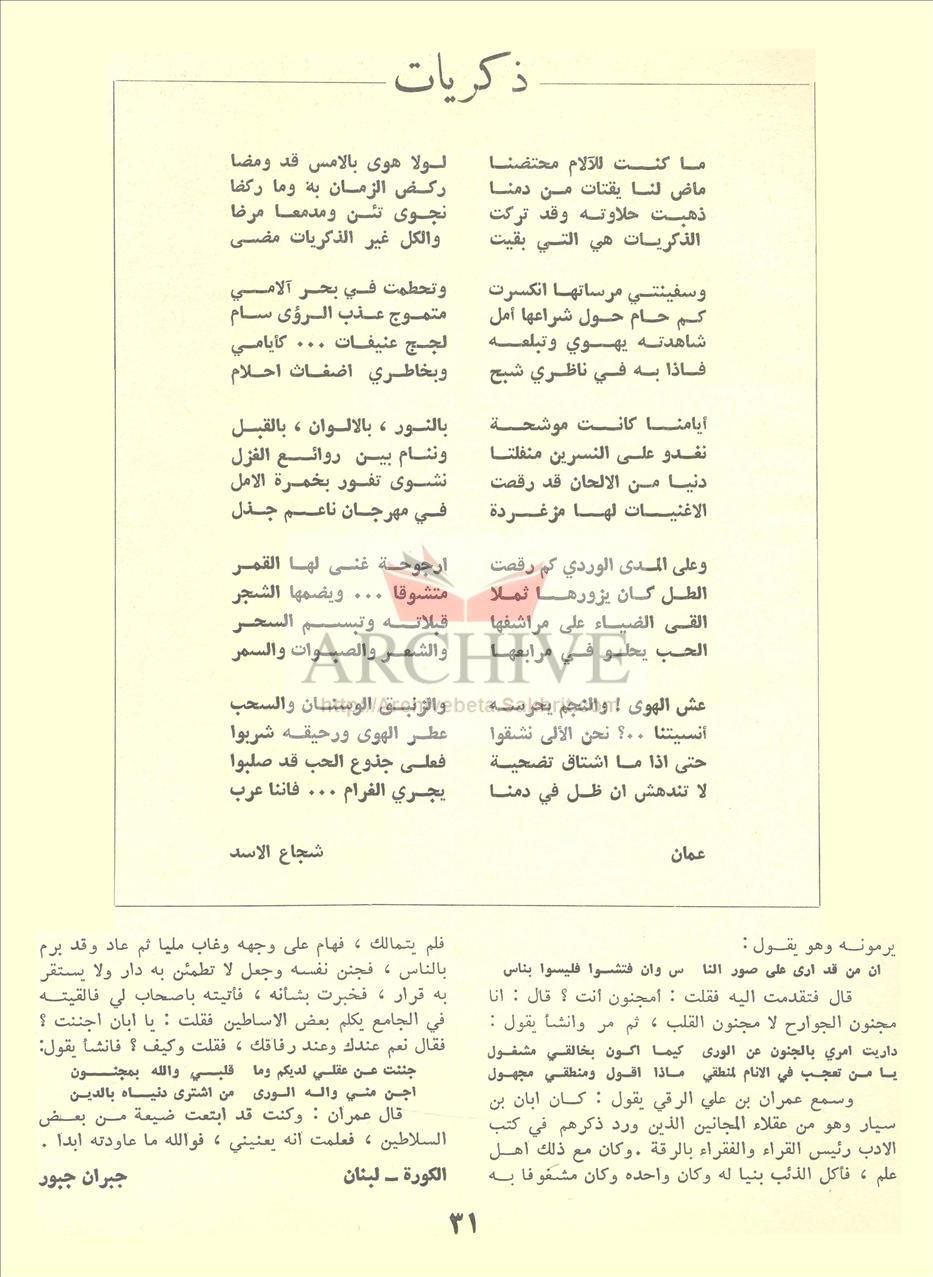 ذكريات
ما كنت للآلام محتضنا لولا هوى بالامس قد ومضا
ماض لنا يقتات من دمنا ركض الزمان به وما ركضا
ذهبت حلاوته وقد تركت نجوى تئن ومدمعا مرضا
الذكريات هي التي بقيت والكل غير الذكريات مضى
وسفينتي مرساتها انكسرت وتحطمت في بحر آلامي
كم حام حول شراعها أمل متموج عذب الرؤى سام
شاهدته يهوي وتبلعه لجج عنيفات ... كأيامي
فاذا به في ناظري شبح وبخاطري اضغاث احلام
أيامنا كانت موشحة بالنور ، بالالوان ، بالقبل
نغدو على النسرين منفلتا وننام بين روائع الغزل
دنيا من الالحان قد رقصت نشوى تفور بخمرة الامل
الاغنيات لها مزغردة في مهرجان ناعم جذل
وعلى المدى الوردي كم رقصت ارجوحة غنى لها القمر
الطل كان يزورها ثملا متشوقا ... ويضمها الشجر
القى الضياء على مراشفها قبلاته وتبسم السحر
الحب يحلو في مرابعها والشعر والصبوات والسمر
عش الهوى ! والنجم يحرسه والزنبق الوسنان والسحب
أنسيتنا ..؟ نحن الألى نشقوا عطر الهوى ورحيقه شربوا
حتى اذا ما اشتاق تضحية فعلى جذوع الحب قد صلبوا
لا تندهش ان ظل في دمنا يجري الغرام ... فاننا عرب
عمان شجاع الاسد
ARCHIVE
http://Archivebeta.Sakhrit.com
يرمونه وهو يقول :
ان من قد ارى على صور النا س وان فتشوا فليسوا بناس
قال فتقدمت اليه فقلت : أمجنون أنت ؟ قال : انا
مجنون الجوارح لا مجنون القلب ، ثم مر وانشأ يقول :
داريت امري بالجنون عن الورى كيما اكون بخالقي مشغول
يا من تعجب في الانام لمنطقي ماذا اقول ومنطقي مجهول
وسمع عمران بن علي الرقي يقول : كان ابان بن
سيار وهو من عقلاء المجانين الذين ورد ذكرهم في كتب
الادب رئيس القراء والفقراء بالرقة .وكان مع ذلك اهل
علم ، فأكل الذئب بنيا له وكان واحده وكان مشغوفا به
فلم يتمالك ، فهام على وجهه وغاب مليا ثم عاد وقد برم
بالناس ، فجنن نفسه وجعل لا تطمئن به دار ولا يستقر
به قرار ، فخبرت بشأنه ، فأتيته باصحاب لي فالقيته
في الجامع يكلم بعض الاساطين فقلت : يا ابان اجننت ؟
فقال نعم عندك وعند رفاقك ، فقلت وكيف ؟ فانشأ يقول:
جننت عن عقلي لديكم وما قلبي والله بمجنون
اجن مني واله الورى من اشترى دنياه بالدين
قال عمران : وكنت قد ابتعت ضيعة من بعض
السلاطين ، فعلمت انه يعنيني ، فوالله ما عاودته ابدا .
الكورة ــ لبنان جبران جبور
٣١